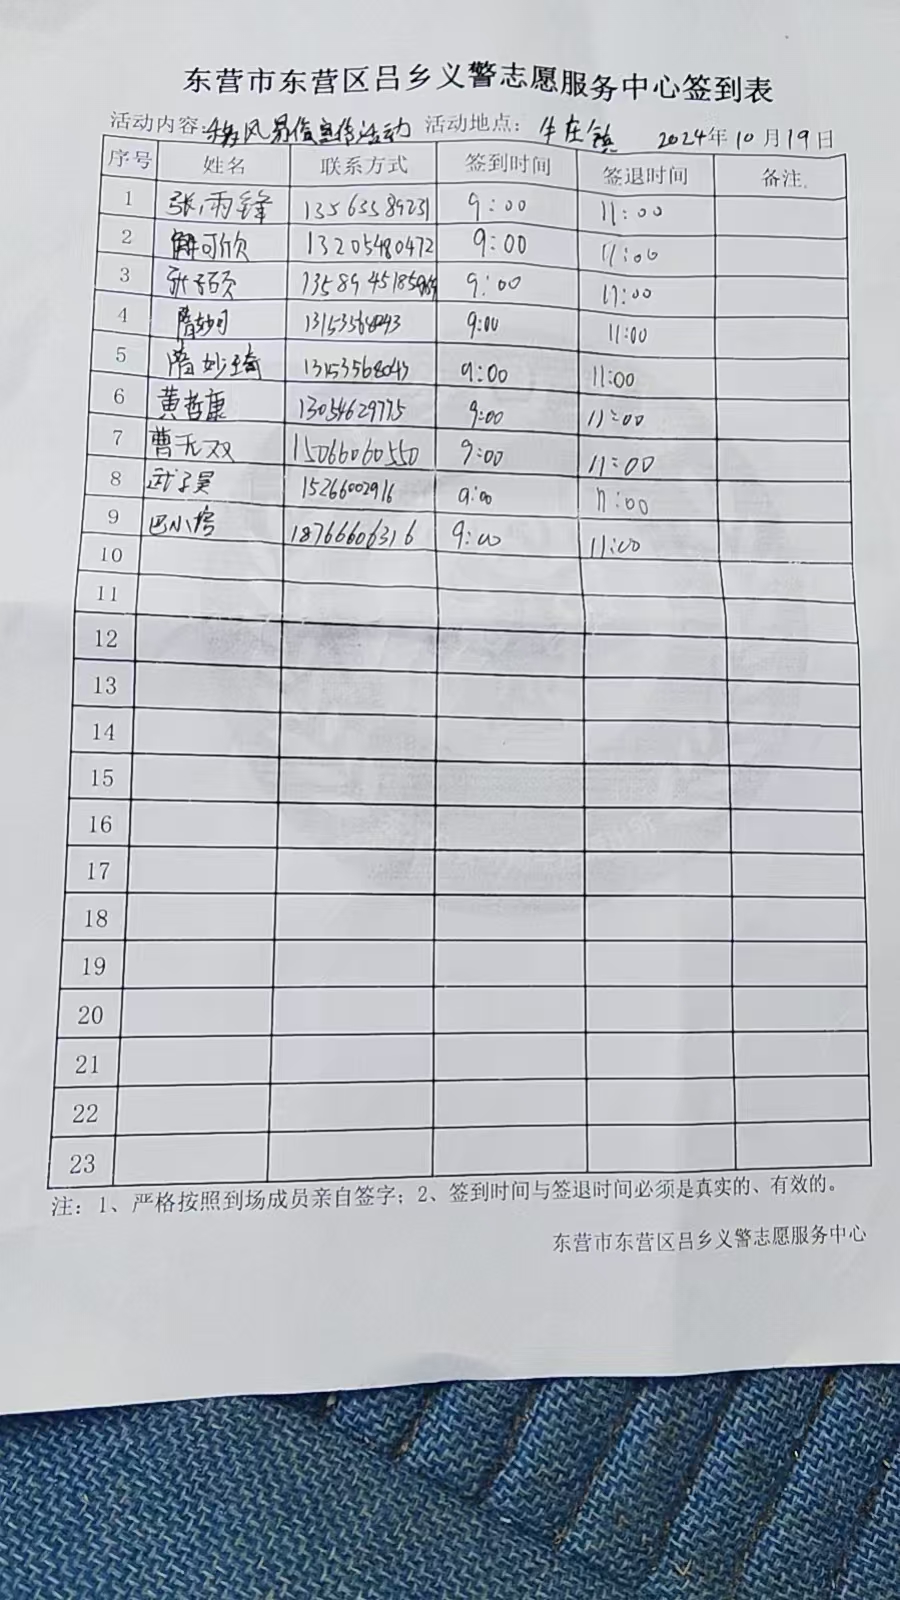 东营市东营区吕乡义警志愿服务中心签到表
活动内容:移风易俗宣传活动 活动地点: 牛庄镇 2024年10月19日
序号 姓名 联系方式 签到时间 签退时间 备注
1 张雨锋 13563589231 9:00 11:00
2 解可欣 13205480472 9:00 11:00
3 张子硕 9:00 11:00
4 隋妙可 13153568043 9:00 11:00
5 隋妙琦 13153568043 9:00 11:00
6 黄哲康 13054629775 9:00 11:00
7 曹无双 15066060550 9:00 11:00
8 武子昊 15266002916 9:00 11:00
9 巴小倍 18766606316 9:00 11:00
10
11
12
13
14
15
16
17
18
19
20
21
22
23
注: 1、严格按照到场成员亲自签字; 2、签到时间与签退时间必须是真实的、有效的。
东营市东营区吕乡义警志愿服务中心